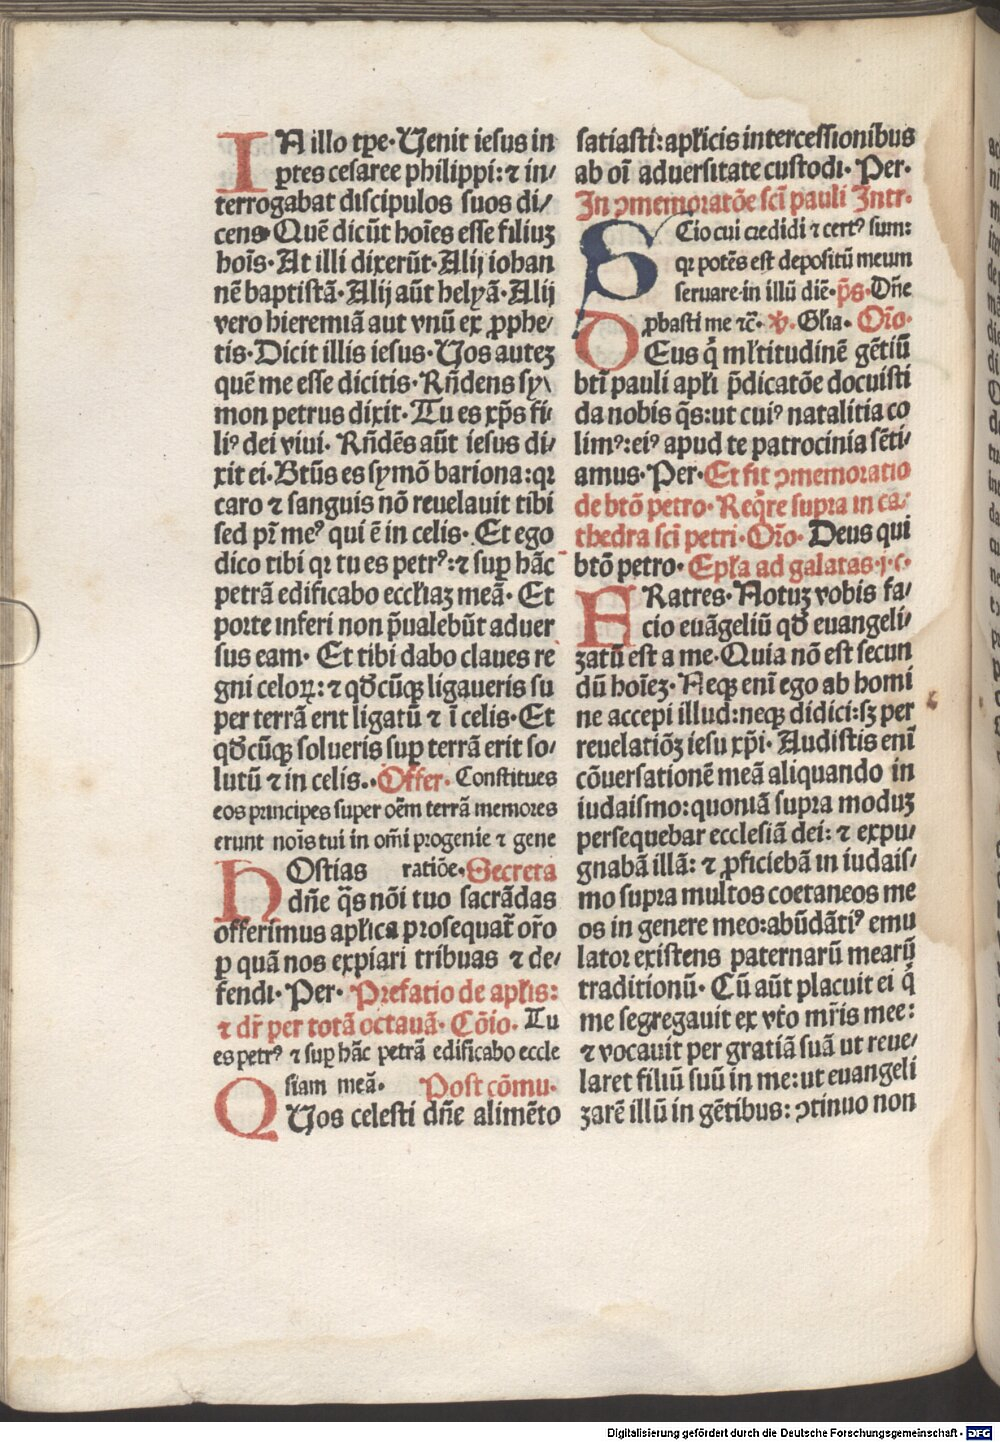 IN illo tp̄e·Uenit iesus in
ꝑtes cesaree philippi: ⁊ in/
terrogabat discipulos suos di/
cens·Quē dicūt hoīes esse filiuꝫ
hoīs·At illi dixerūt·Alij iohan
nē baptistā·Alij aūt helyā·Alij
vero hieremiā aut vnū ex ꝓphe/
tis·Dicit illis iesus·Uos auteꝫ
quē me esse dicitis·Rn̄dens sy\
mon petrus dixit·Tu es xp̄s fi/
liꝰ dei viui· Rn̄dēs aūt iesus di/
xit ei·Btūs es symō bariona:qꝛ
caro ⁊ sanguis nō reuelauit tibi
sed pr̄ meꝰ qui ē in celis· Et ego
dico tibi qꝛ tu es petrꝰ:⁊ suꝑ hāc
petrā edificabo eccl̄iaꝫ meā· Et
porte inferi non p̄ualebūt aduer
sus eam· Et tibi dabo claues re
gni celoꝝ: ⁊ qd̄cūqꝫ ligaueris su
per terrā erit ligatū ⁊ ī celis·Et
qd̄cūqꝫ solueris suꝑ terrā erit so/
lutū ⁊ in celis.·Offer· Constitues
eos principes super oēm terrā memores
erunt noīs tui in om̄i progenie ⁊ gene
HOstias ratiōe·Secreta
dn̄e q̄s nōi tuo sacrādas
offerimus apl̄ica prosequat̄ or̄o
ꝑ quā nos expiari tribuas ⁊ de/
fendi·Per· Prefatio de apl̄is:
⁊ dr̄ per totā octauā· Cōio· Tu
es petrꝰ ⁊ suꝑ hāc petrā edificabo eccle
siam meā· Post cōmu·
QUos celesti dn̄e alimēto
satiasti:apl̄icis intercessionibus
ab oī aduersitate custodi·Per·
In ꝯmemoratōe sc̄i pauli Intr·
SCio cui credidi ⁊ certꝰ sum:
qꝛ potēs est depositū meum
seruare in illū diē·p̄s·Dn̄e
ꝓbasti me ⁊c̄· v̄·Gl̄ia· Or̄o·
DEus q̄ ml̄titudinē gētiū
bti̅ pauli apl̄i p̄dicatōe docuisti
da nobis q̄s:ut cuiꝰ natalitia co
limꝰ:eiꝰ apud te patrocinia sēti/
amus·Per·Et fit ꝯmemoratio
de btō petro·Req̄re supra in ca/
thedra sc̄i petri·Or̄o· Deus qui
btō petro· Epl̄a ad galatas·j·c·
FRatres·Notuꝫ vobis fa/
cio euāgeliū qd̄ euangeli/
zatū est a me·Quia nō est secun
dū hoīeꝫ·Neqꝫ enī ego ab homi
ne accepi illud:neqꝫ didici:sꝫ per
reuelatiōꝫ iesu xp̄i·Audistis enī
cōuersationē meā aliquando in
iudaismo:quoniā supra moduꝫ
persequebar ecclesiā dei: ⁊ expu/
gnabā illā: ⁊ ꝓficiebā in iudais/
mo supra multos coetaneos me
os in genere meo:abūdātiꝰ emu
lator existens paternarū mearū
traditionū· Cū aūt placuit ei q̄
me segregauit ex vt̄o mr̄is mee:
⁊ vocauit per gratiā suā ut reue/
laret filiū suū in me:ut euangeli
zarē illū in gētibus: ꝯtinuo non
Digitalisierung gefördert durch die Deutsche Forschungsgemeinschaft · DFG